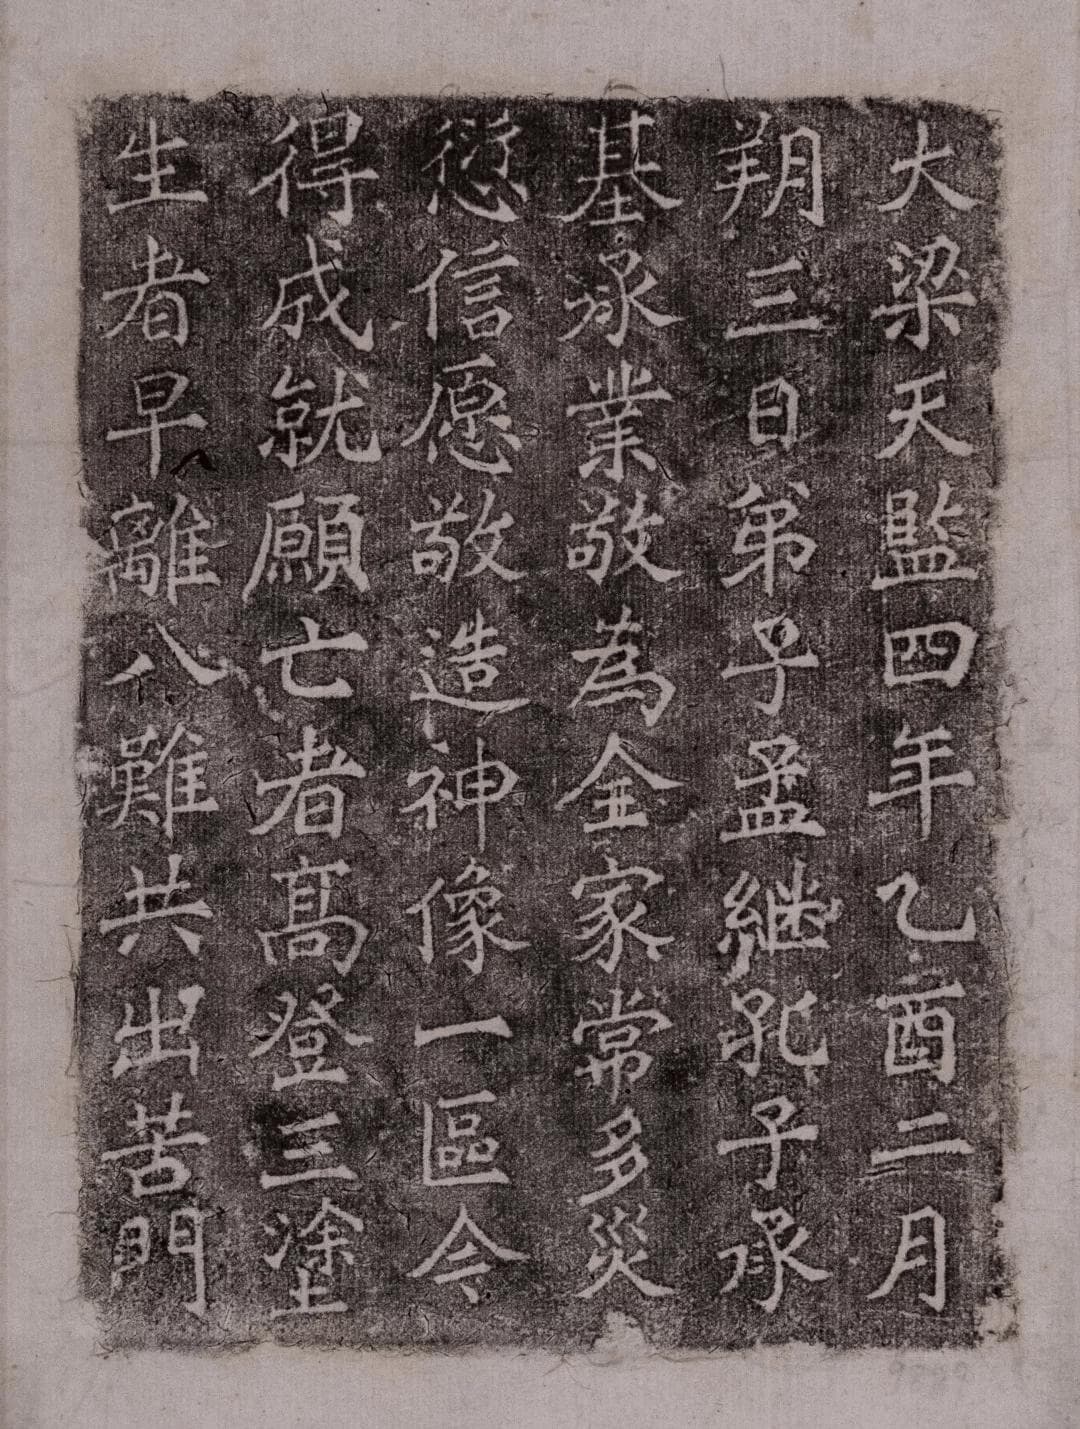 大梁天監四年乙酉二月
朔三日弟子孟継孔子承
基承業敬為全家常多災
愆信愿敬造神像一區今
得成就願亡者髙登三塗
生者早離八難共出苦門